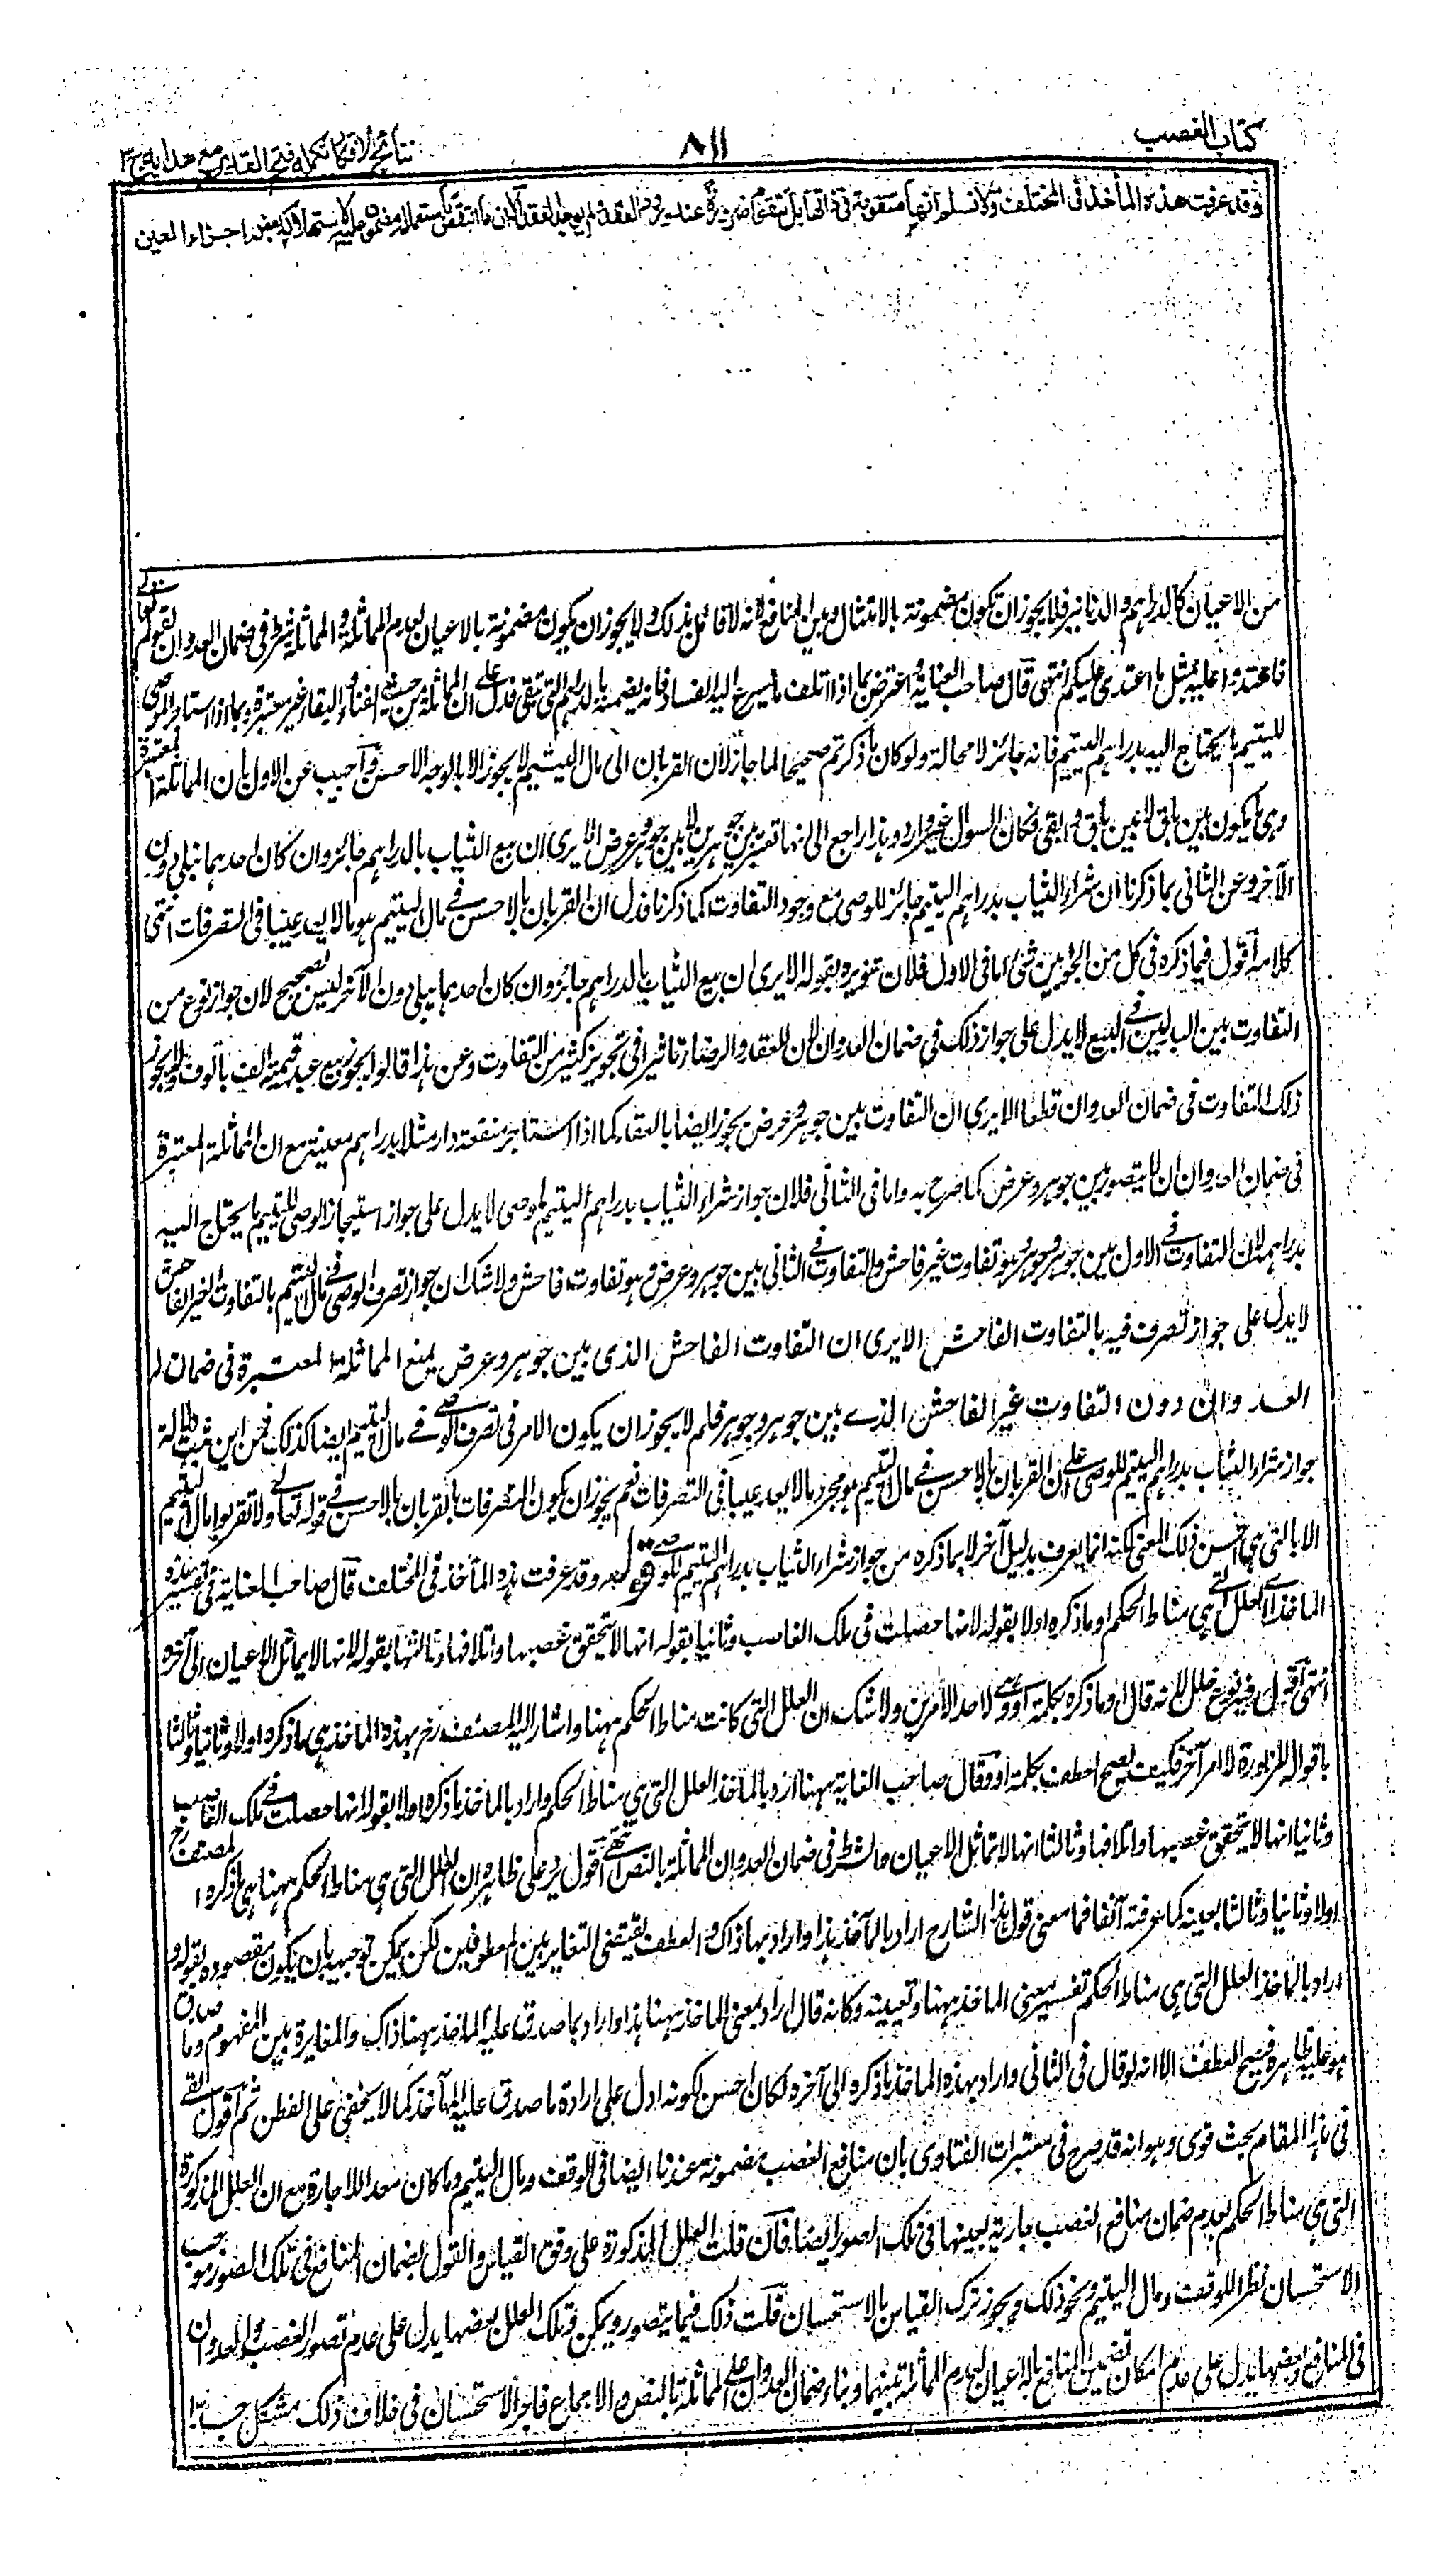 كتاب الغصب
٨١١
نتائج الافكار تكملة فتح القدير مع هدايه ج ٣
وقد عرفت هذه المأخذ فى المختلف ولا نسلم انها متقومة فى ذاتها بل تقوم ضرورة عند ورود العقد ولم يوجد العقد الا ان ما انتقص باستعماله مضمون عليه لاستهلاكه بعض اجزاء العين
من الاعيان كالدراهم والدنانير فلا يجوز ان تكون مضمونة بالامثال وهى المنافع لانه لا قائل بذلك ولا يجوز ان يكون مضمونة بالاعيان لعدم المماثلة والمماثلة شرط فى ضمان العدوان لقوله تعالى
فاعتدوا عليه بمثل ما اعتدى عليكم انتهى قال صاحب العناية واعترض بما اذا اتلف ما يسرع اليه الفساد فانه يضمنه بالدراهم التى تبقى فدل على ان المماثلة من حيث الفناء والبقاء غير معتبرة وبما اذا استاجر الوصى
لليتيم ما يحتاج اليه بدراهم اليتيم فانه جائز لا محالة ولو كان ما ذكرتم صحيحا لما جاز لان القربان الى مال اليتيم لا يجوز الا بالوجه الاحسن واجيب عن الاول بان المماثلة المعتبرة
هى ما يكون بين باق وباق لا بين باق وابقى فكان السوال غير وارد وهذا راجع الى انها تعتبر بين جوهرين لا بين جوهر وعرض الا يرى ان بيع الثياب بالدراهم جائز وان كان احدهما يبلى دون
الآخر وعن الثانى بما ذكرنا ان شراء الثياب بدراهم اليتيم جائز للوصى مع وجود التفاوت كما ذكرنا فدل ان القربان بالاحسن فى مال اليتيم هو مالا يعد عيبا فى التصرفات انتهى
كلامه اقول فيما ذكره فى كل من الجوابين شىء اما فى الاول فلان تنويره بقوله الا يرى ان بيع الثياب بالدراهم جائز وان كان احدهما يبلى دون الآخر ليس بصحيح لان جواز نوع من
التفاوت بين البدلين فى البيع لا يدل على جواز ذلك فى ضمان العدوان لان للعقد والرضا تاثيرا فى تجويز كثير من التفاوت وعن هذا قالوا يجوز بيع عبد قيمته الف بالوف ولا يجوز
ذلك التفاوت فى ضمان العدوان قطعا الا يرى ان التفاوت بين جوهر وعرض يجوز ايضا بالعقد كما اذا استاجر منفعة دار مثلا بدراهم معينة مع ان المماثلة المعتبرة
فى ضمان العدوان لا يتصور بين جوهر وعرض كما صرح به واما فى الثانى فلان جواز شراء الثياب بدراهم اليتيم للوصى لا يدل على جواز استيجار الوصى لليتيم ما يحتاج اليه
بدراهمه لان التفاوت فى الاول بين جوهر وجوهر وهو تفاوت غير فاحش والتفاوت فى الثانى بين جوهر وعرض وهو تفاوت فاحش ولا شك ان جواز تصرف الوصى فى مال اليتيم بالتفاوت الغير الفاحش
لا يدل على جواز تصرف فيه بالتفاوت الفاحش الا يرى ان التفاوت الفاحش الذى بين جوهر وعرض يمنع المماثلة المعتبرة فى ضمان
العدوان دون التفاوت غير الفاحش الذى بين جوهر وجوهر فلم لا يجوز ان يكون الامر فى تصرف الوصى فى مال اليتيم ايضا كذلك فمن اين ثبت دلالة
جواز شراء الثياب بدراهم اليتيم للوصى على ان القربان بالاحسن فى مال اليتيم هو مجرد مالا يعد عيبا فى التصرفات نعم يجوز ان يكون المتصرفات بالقربان بالاحسن فى قوله تعالى ولا تقربوا مال اليتيم
الا بالتى هى احسن ذلك المعنى لكنه انما يعرف بدليل آخر لا بما ذكره من جواز شراء الثياب بدراهم اليتيم للوصى قوله وقد عرفت هذه المأخذ فى المختلف قال صاحب العناية فى تفسير هذه
الماخذ اى العلل التى هى مناط الحكم او ما ذكره اولا بقوله لانها حصلت فى ملك الغاصب وثانيا بقوله انها لا يتحقق غصبها واتلافها وثالثا بقوله لانها لا يماثل الاعيان الى آخره
انتهى اقول فيه نوع خلل لانه قال او ما ذكره بكلمة او وهى لاحد الامرين ولا شك ان العلل التى كانت مناط الحكم ههنا واشار اليه المصنف رح بهذه الماخذ هى ما ذكره اولا وثانيا وثالثا
باقواله المزبورة لا امر آخر فكيف يصح العطف بكلمة او وقال صاحب الغاية ههنا اراد بالمأخذ العلل التى هى مناط الحكم واراد بالمأخذ ما ذكره اولا بقوله انها حصلت فى ملك الغاصب
وثانيا انها لا يتحقق غصبها واتلافها وثالثا انها لا تماثل الاعيان والشرط فى ضمان العدوان المماثلة بالنص انتهى اقول يرد على ظاهره ان العلل التى هى مناط الحكم ههنا هى ما ذكره المصنف رح
اولا وثانيا وثالثا بعينه كما عرفته آنفا فما معنى قول هذا الشارح اراد بالمآخذ هذا واراد بها ذاك والعطف يقتضى التغاير بين المعطوفين لكن يمكن توجيهه بان يكون مقصوده بقوله
اراد بالمأخذ العلل التى هى مناط الحكم تفسير معنى الماخذ ههنا وتعيينه وكانه قال اراد بمعنى الماخذ ههنا هذا واراد بما صدق عليه الماخذ ههنا ذاك والمغايرة بين المفهوم وما صدق
هو عليه ظاهرة فيصح العطف الا انه لو قال فى الثانى واراد بهذه الماخذ ما ذكره الى آخره لكان احسن لكونه ادل على ارادة ما صدق عليه المآخذ كما لا يخفى على الفطن ثم اقول بقى
فى هذا المقام بحث قوى وهو انه قد صرح فى معتبرات الفتاوى بان منافع الغصب مضمونة عندنا ايضا فى الوقف ومال اليتيم وما كان معدا للاجارة مع ان العلل المذكورة
التى هى مناط الحكم بعدم ضمان منافع الغصب جارية بعينها فى تلك الصور ايضا فان قلت العلل المذكورة على وفق القياس والقول بضمان المنافع فى تلك الصور موجب
الاستحسان نظرا للوقف ومال اليتيم ونحو ذلك ويجوز ترك القياس بالاستحسان قلت ذلك فيما يتصور ويمكن وتلك العلل بعضها يدل على عدم تصور الغصب والعدوان
فى المنافع وبعضها يدل على عدم امكان تضمين المنافع بالاعيان لعدم المماثلة بينهما وبناء ضمان العدوان على المماثلة بالنص والاجماع فاجراء الاستحسان فى خلاف ذلك مشكل جدا